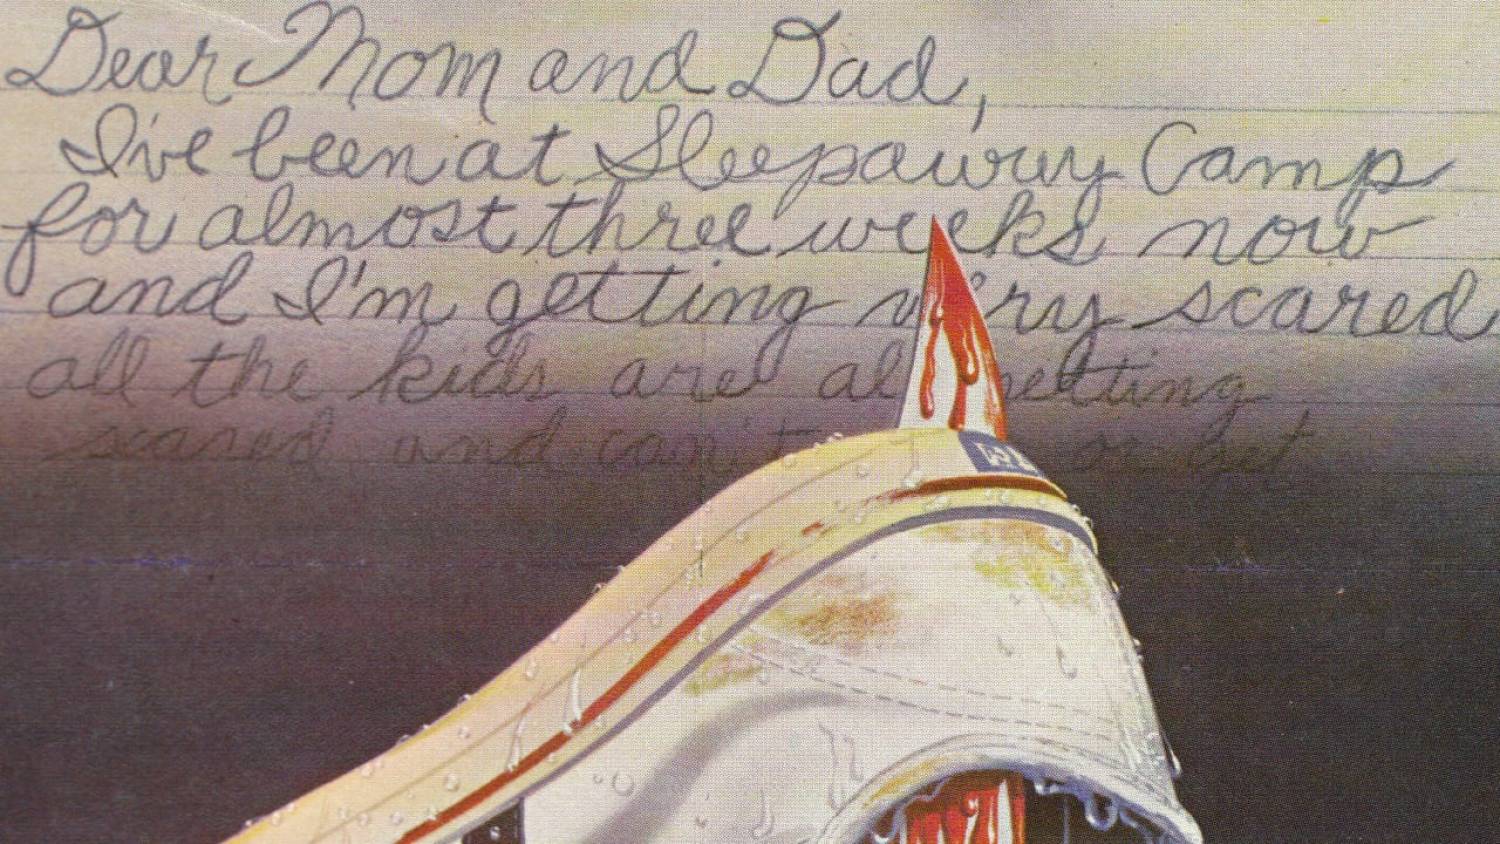 Dear Mom and Dad,
I've been at Sleepaway Camp
for almost three weeks now
and I'm getting very scared
all the kids are getting
scared and can't or